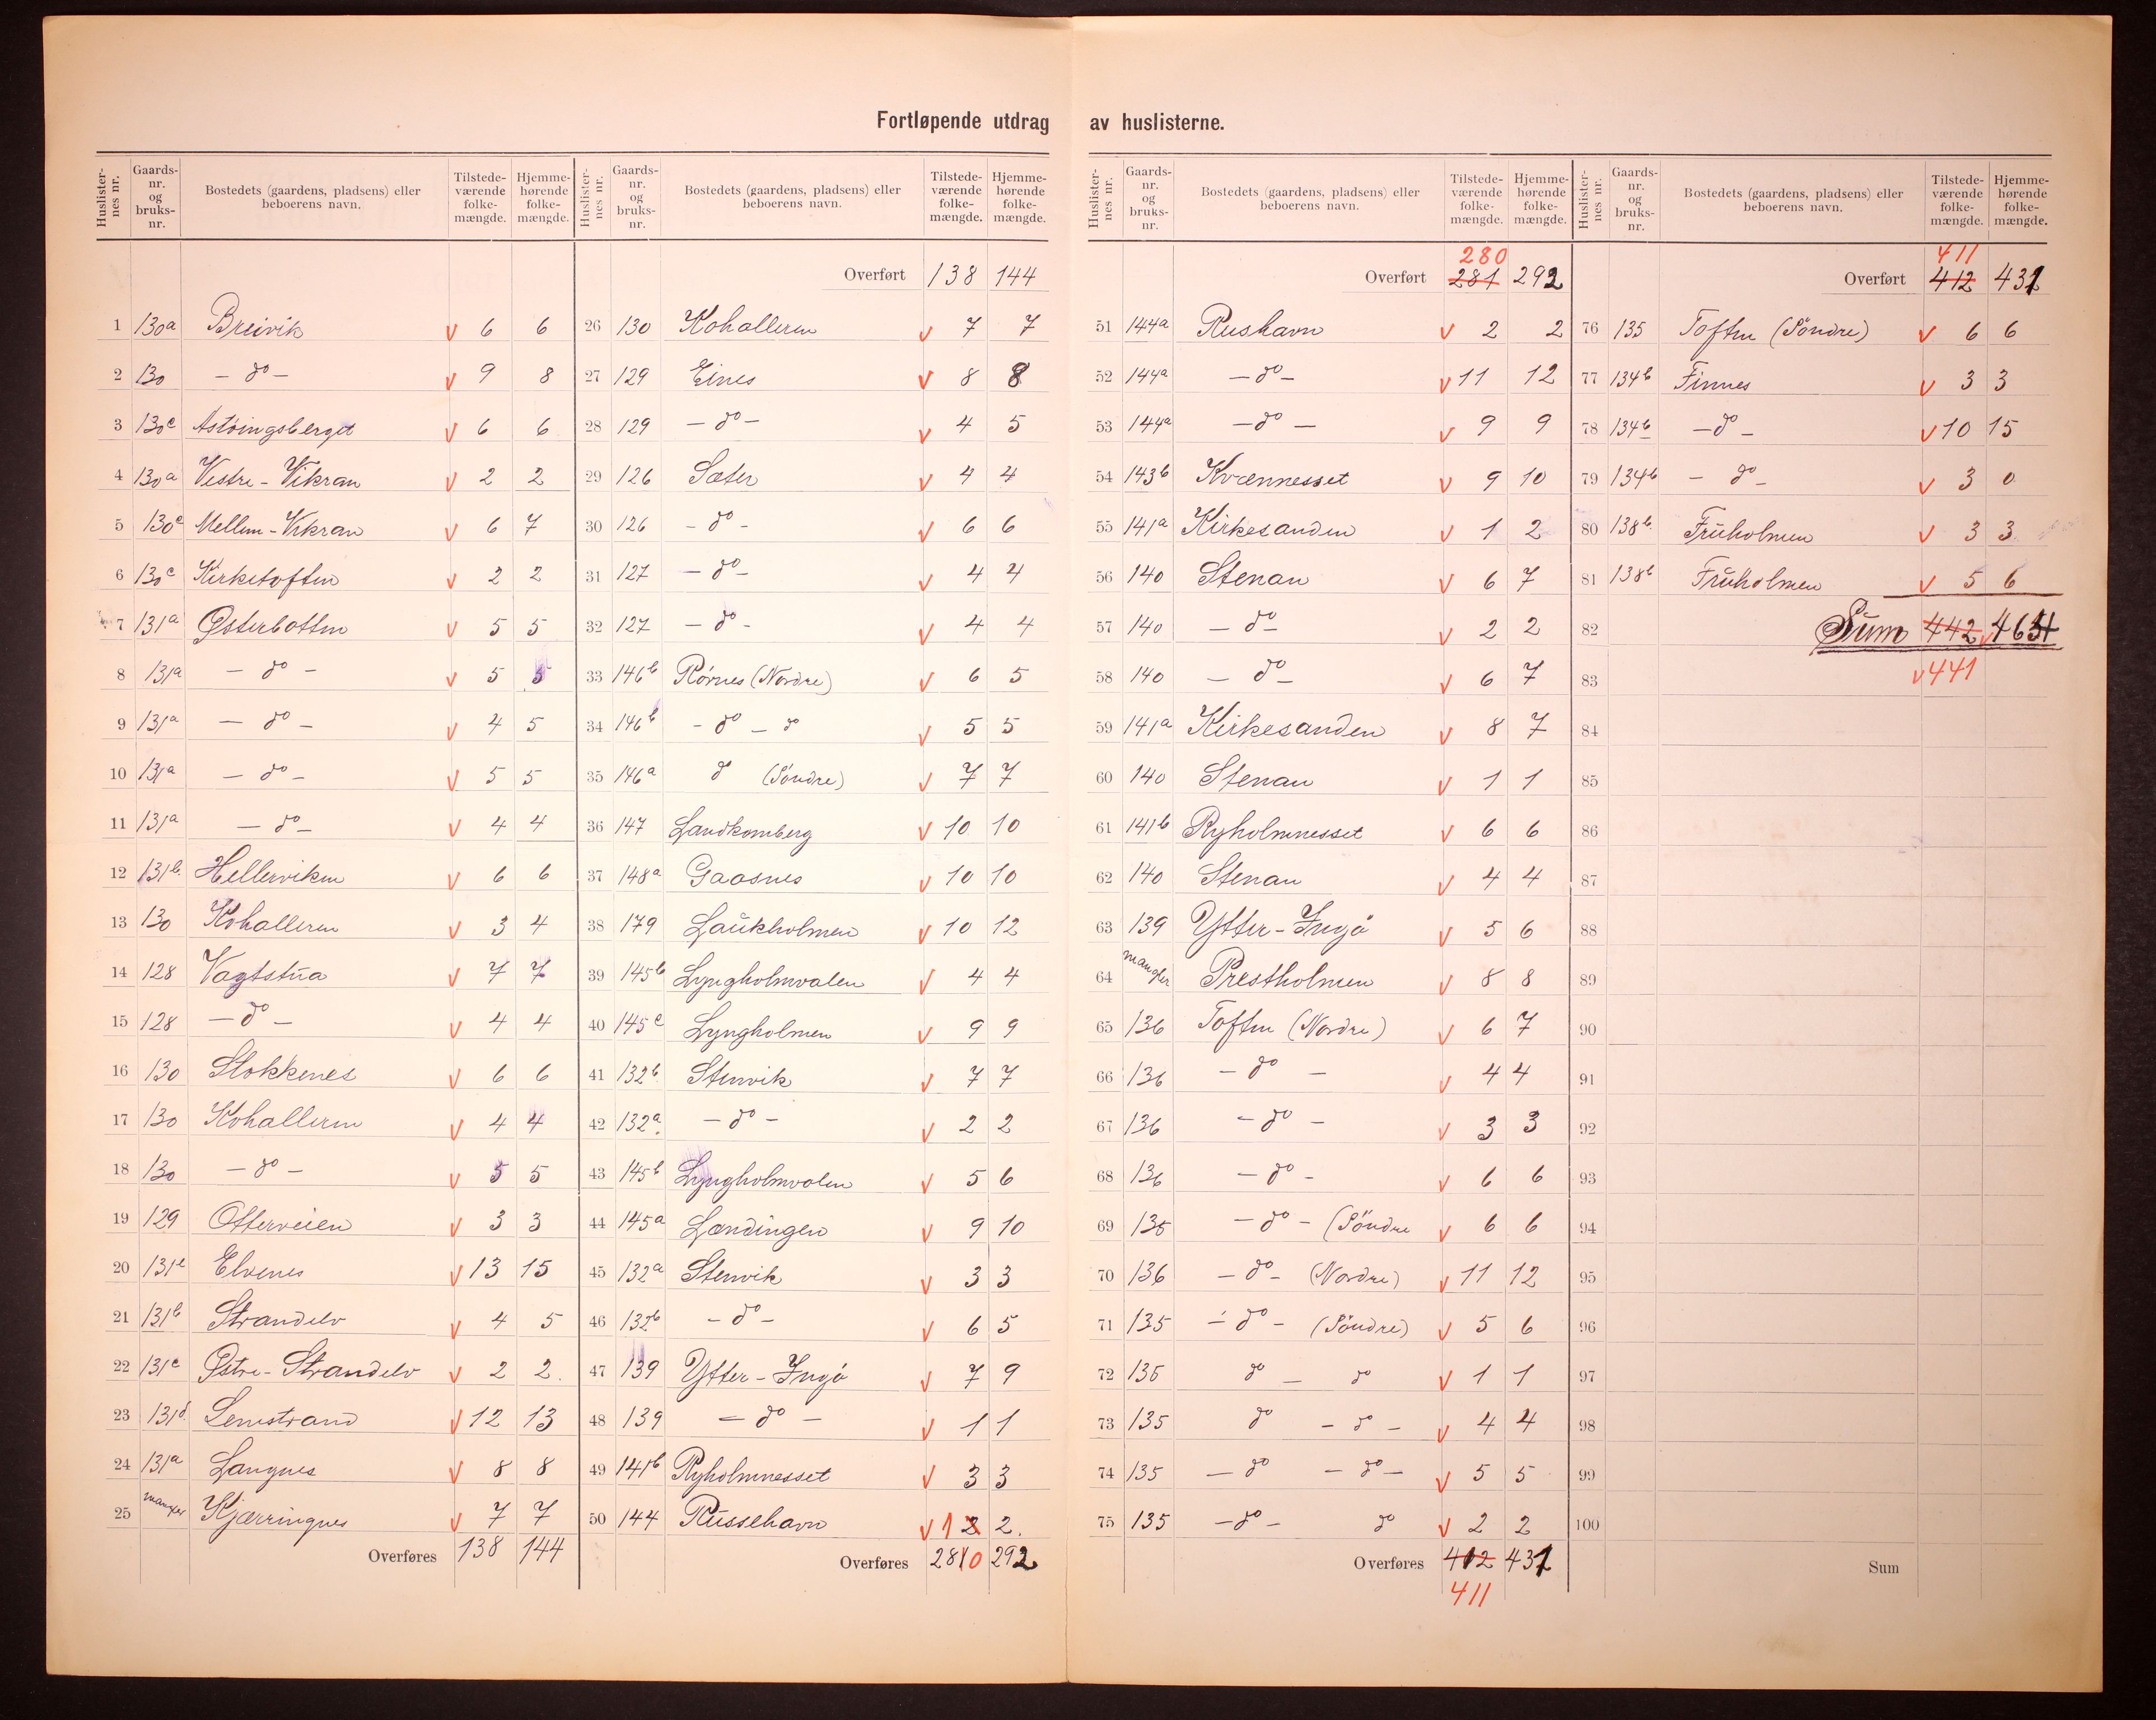 Fortløpende utdrag av huslisterne.
Huslister-nes nr. Gaards-nr. og bruks-nr. Bostedets (gaardens, pladsens) eller beboerens navn. Tilstede-værende folke-mængde. Hjemme-hørende folke-mængde.
1 130a Breivik v 6 6
2 130 – do – v 9 8
3 130c Astöingsberget v 6 6
4 130a Vestre-Vikran v 2 2
5 130c Mellem-Vikran v 6 7
6 130c Kirketoften v 2 2
7 131a Østerbotten v 5 5
8 131a – do – v 5 5
9 131a – do – v 4 5
10 131a – do – v 5 5
11 131a – do – v 4 4
12 131b Hellerviken v 6 6
13 130 Kohalleren v 3 4
14 128 Vagtstua v 7 7
15 128 – do – v 4 4
16 130 Stokkenes v 6 6
17 130 Kohalleren v 4 4
18 130 – do – v 5 5
19 129 Otterveien v 3 3
20 131e Elvenes v 13 15
21 131b Strandelv v 4 5
22 131c Østre-Strandelv v 2 2.
23 131d Lemstrand v 12 13
24 131a Langnes v 8 8
25 mangler Kjærringnes v 7 7
Overføres 138 144
Huslister-nes nr. Gaards-nr. og bruks-nr. Bostedets (gaardens, pladsens) eller beboerens navn. Tilstede-værende folke-mængde. Hjemme-hørende folke-mængde.
Overført 138 144
26 130 Kohalleren v 7 7
27 129 Eines v 8 8
28 129 – do – v 4 5
29 126 Sæter v 4 4
30 126 – do – v 6 6
31 127 – do – v 4 4
32 127 – do – v 4 4
33 146b Rörnes (Nordre) v 6 5
34 146b – do – do v 5 5
35 146a do (Söndre) v 7 7
36 147 Landkomberg v 10 10
37 148a Gaasnes v 10 10
38 179 Laukholmen v 10 12
39 145b Lyngholmvalen v 4 4
40 145c Lyngholmen v 9 9
41 132b Stenvik v 7 7
42 132a. – do – v 2 2
43 145b Lyngholmvalen v 5 6
44 145a Lændingen v 9 10
45 132a Stenvik v 3 3
46 132b – do – v 6 5
47 139 Ytter-Ingö v 7 9
48 139 – do – v 1 1
49 141b Ryholmnesset v 3 3
50 144 Russehavn v 1 2 2.
Overføres 281 0 292
Huslister-nes nr. Gaards-nr. og bruks-nr. Bostedets (gaardens, pladsens) eller beboerens navn. Tilstede-værende folke-mængde. Hjemme-hørende folke-mængde.
280
Overført 281 292
51 144a Rushavn v 2 2
52 144a – do – v 11 12
53 144a – do – v 9 9
54 143b Kvænnesset v 9 10
55 141a Kirkesanden v 1 2
56 140 Stenan v 6 7
57 140 – do – v 2 2
58 140 – do – v 6 7
59 141a Kirkesanden v 8 7
60 140 Stenan v 1 1
61 141b Ryholmnesset v 6 6
62 140 Stenan v 4 4
63 139 Ytter-Ingö v 5 6
64 mangler Prestholmen v 8 8
65 136 Toften (Nordre) v 6 7
66 136 – do – v 4 4
67 136 – do – v 3 3
68 136 – do – v 6 6
69 135 – do – (Söndre v 6 6
70 136 – do – (Nordre) v 11 12
71 135 – do – (Söndre) v 5 6
72 135 do – do v 1 1
73 135 do – do – v 4 4
74 135 – do – do – v 5 5
75 135 – do – do v 2 2
Overføres 412 431
411
Huslister-nes nr. Gaards-nr. og bruks-nr. Bostedets (gaardens, pladsens) eller beboerens navn. Tilstede-værende folke-mængde. Hjemme-hørende folke-mængde.
411
Overført 412 431
76 135 Toften (Söndre) v 6 6
77 134b Finnes v 3 3
78 134b – do – v 10 15
79 134b – do – v 3 0
80 138b Fruholmen v 3 3
81 138b Fruholmen v 5 6
82 Sum 442 v 464
83 v 441
84
85
86
87
88
89
90
91
92
93
94
95
96
97
98
99
100
Sum